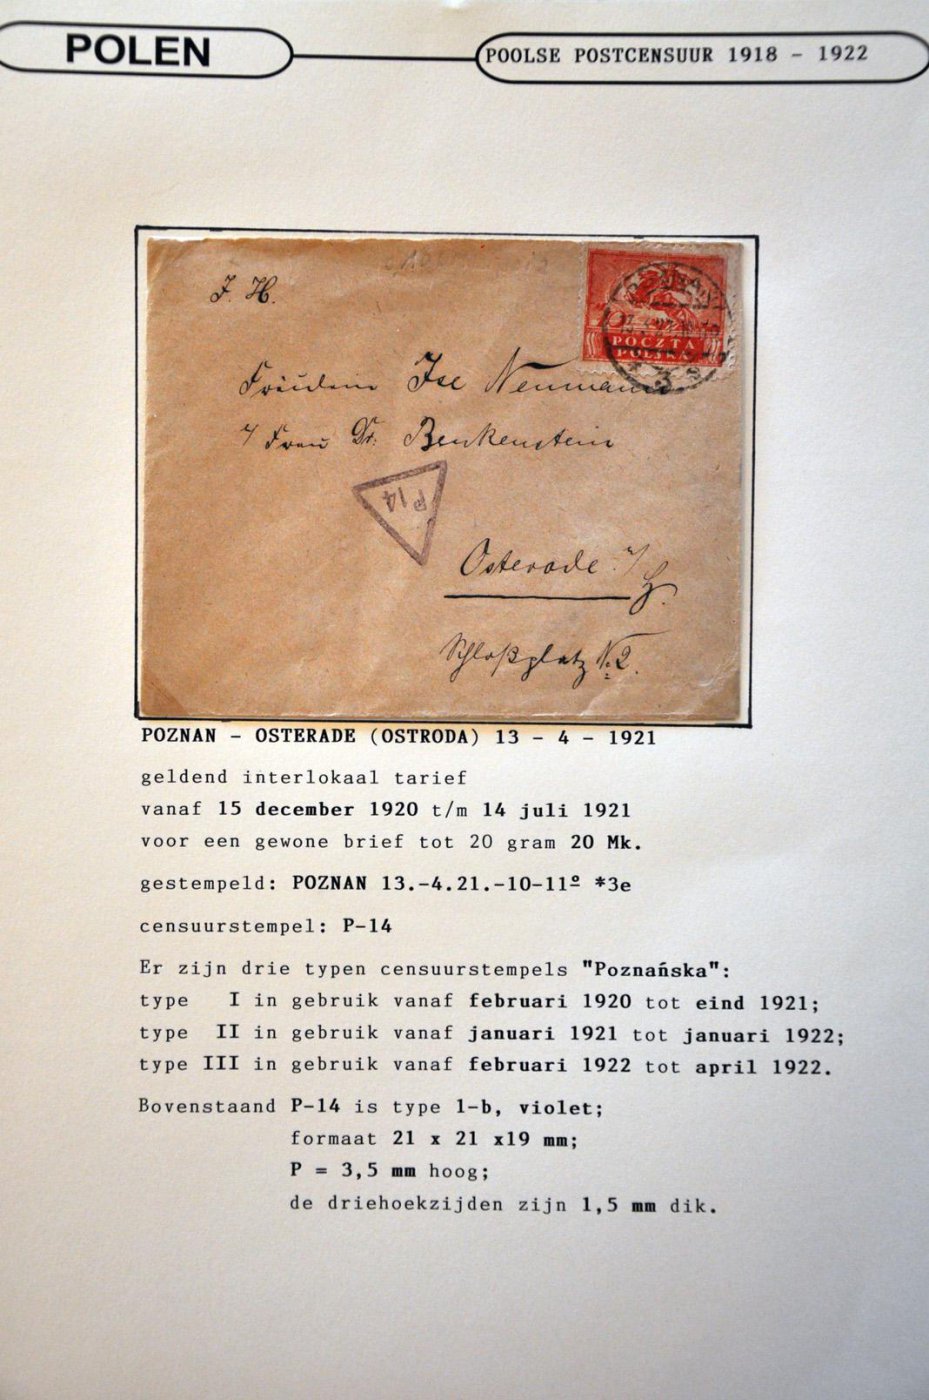 POLEN
POOLSE POSTCENSUUR 1918 - 1922
J. H.
POZNAŃ
POCZTA
POLSKA
3
Fräulein Ise Neumann
Frau Dr. Benkenstein
P14
Osterode a/H.
Schloßplatz № 2.
POZNAN - OSTERADE (OSTRODA) 13 - 4 - 1921
geldend interlokaal tarief
vanaf 15 december 1920 t/m 14 juli 1921
voor een gewone brief tot 20 gram 20 Mk.
gestempeld: POZNAN 13.-4.21.-10-11º *3e
censuurstempel: P-14
Er zijn drie typen censuurstempels "Poznańska":
type I in gebruik vanaf februari 1920 tot eind 1921;
type II in gebruik vanaf januari 1921 tot januari 1922;
type III in gebruik vanaf februari 1922 tot april 1922.
Bovenstaand P-14 is type 1-b, violet;
formaat 21 x 21 x19 mm;
P = 3,5 mm hoog;
de driehoekzijden zijn 1,5 mm dik.